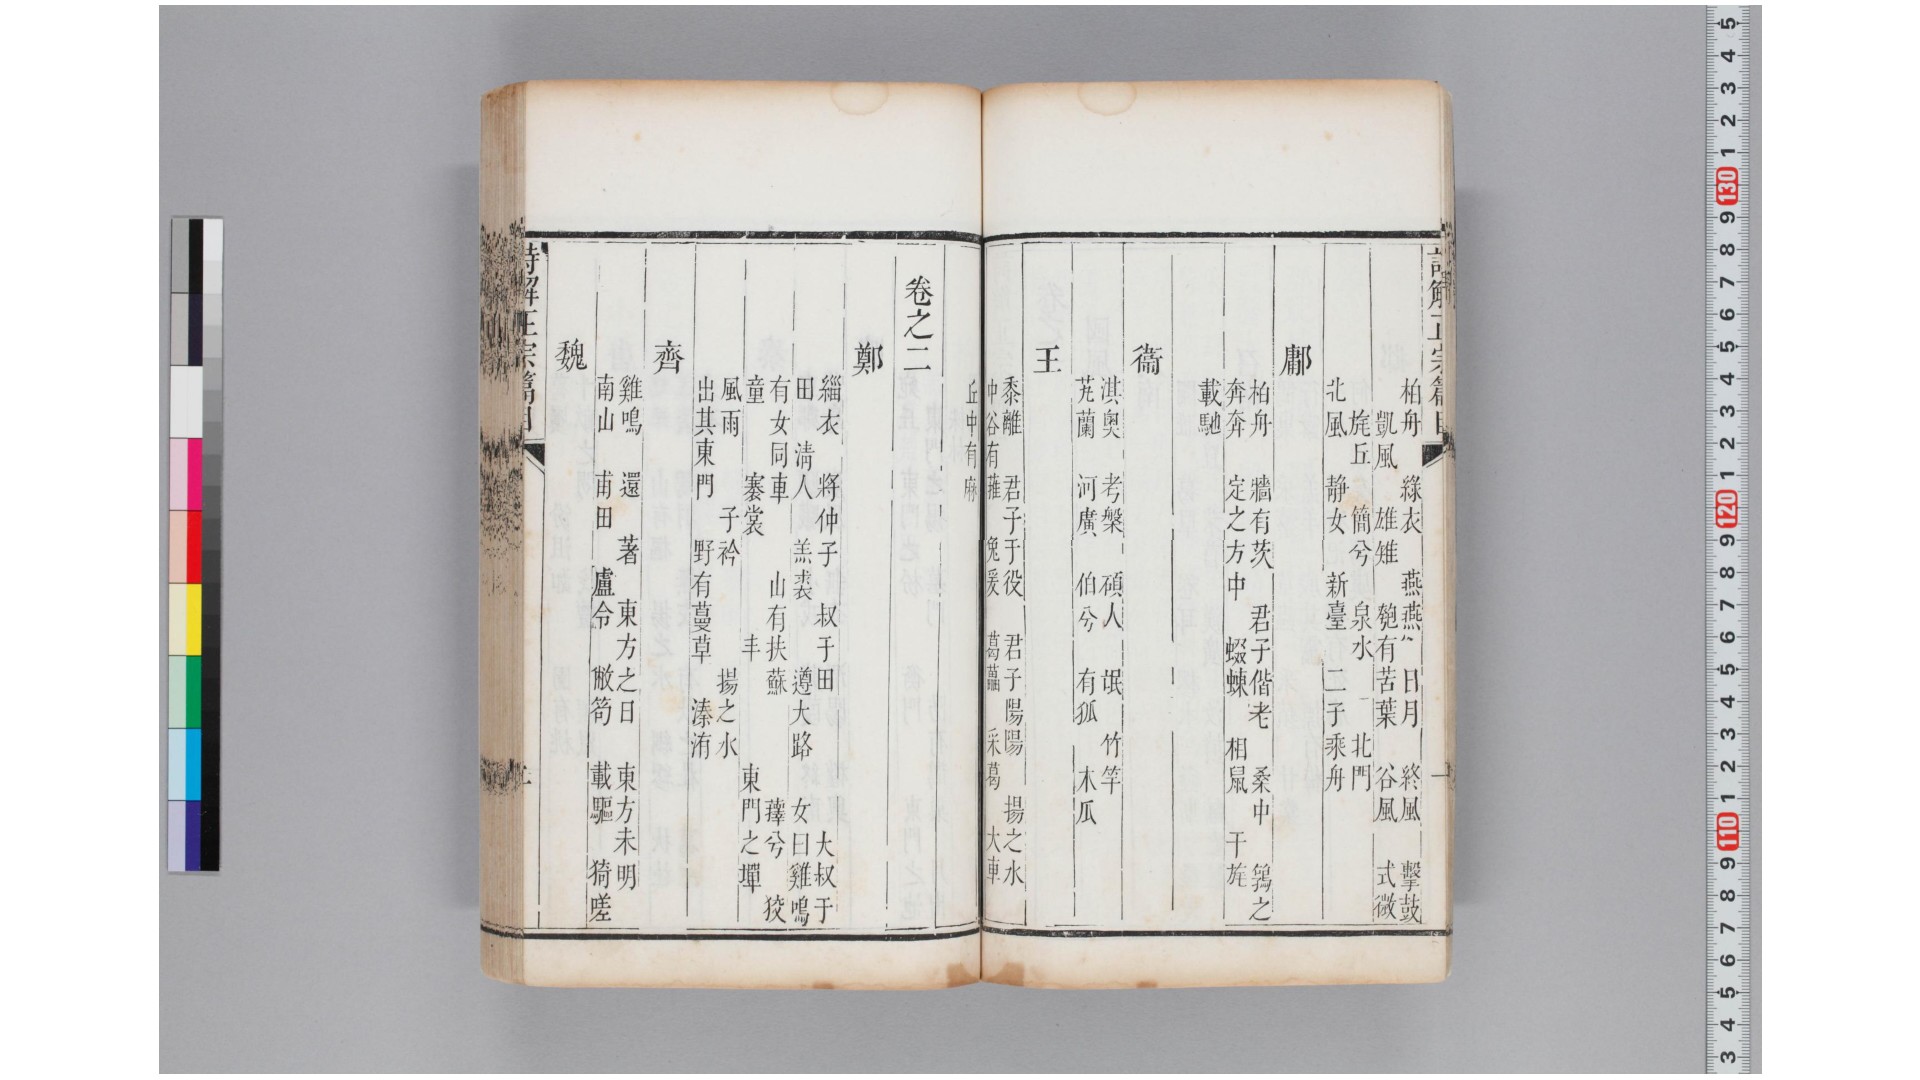 詩解正宗篇目 一
柏舟 綠衣 燕燕 日月 終風 擊鼓
凱風 雄雉 匏有苦葉 谷風 式微
旄丘 簡兮 泉水 北門
北風 靜女 新臺 二子乘舟
鄘
柏舟 牆有茨 君子偕老 桑中 鶉之
奔奔 定之方中 蝃蝀 相鼠 干旄
載馳
衞
淇奧 考槃 碩人 氓 竹竿
芄蘭 河廣 伯兮 有狐 木瓜
王
黍離 君子于役 君子陽陽 揚之水
中谷有蓷 兔爰 葛藟 采葛 大車
丘中有麻
卷之二
鄭
緇衣 將仲子 叔于田 大叔于
田 清人 羔裘 遵大路 女曰雞鳴
有女同車 山有扶蘇 蘀兮 狡
童 褰裳 丰 東門之墠
風雨 子衿 揚之水
出其東門 野有蔓草 溱洧
齊
雞鳴 還 著 東方之日 東方未明
南山 甫田 盧令 敝笱 載驅 猗嗟
魏
詩解正宗篇目
5 4 3 2 1 130 9 8 7 6 5 4 3 2 1 120 9 8 7 6 5 4 3 2 1 110 9 8 7 6 5 4 3